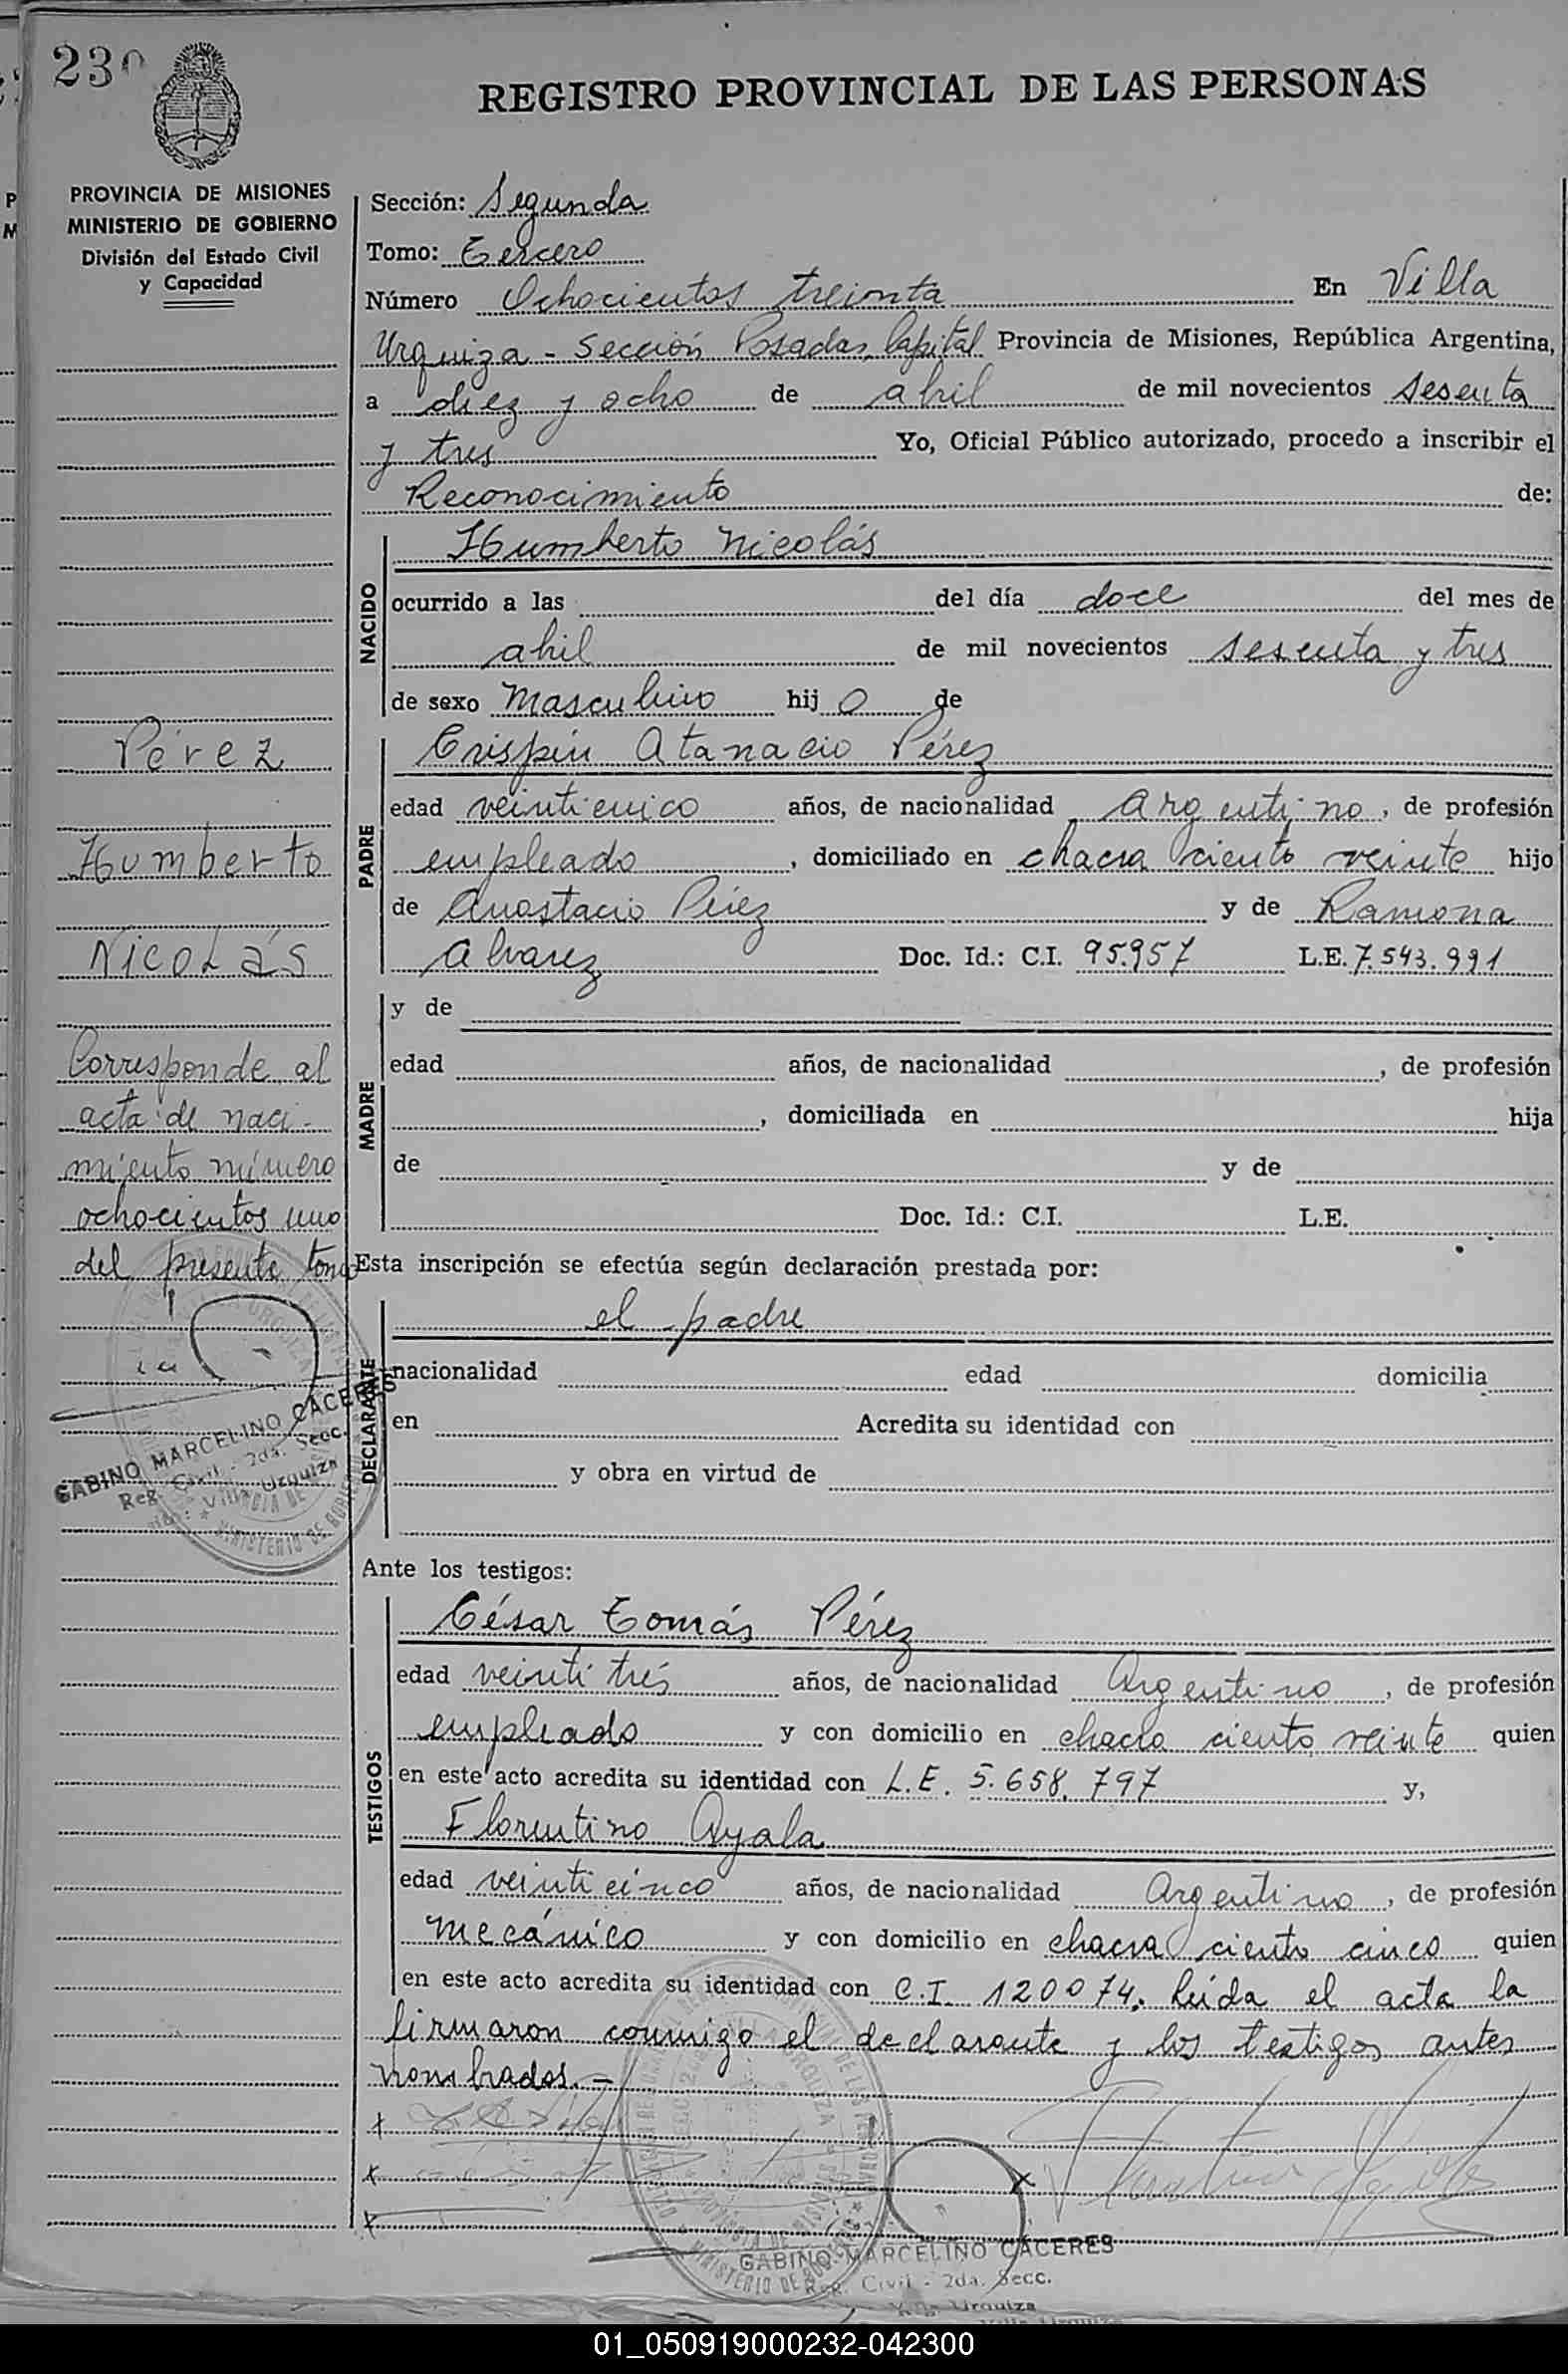 230
REGISTRO PROVINCIAL DE LAS PERSONAS
PROVINCIA DE MISIONES
MINISTERIO DE GOBIERNO
División del Estado Civil
y Capacidad
Sección: Segunda
Tomo: Tercero
Número Ochocientos treinta En Villa
Urquiza - Sección Posadas, Capital Provincia de Misiones, República Argentina,
a diez y ocho de abril de mil novecientos sesenta
y tres Yo, Oficial Público autorizado, procedo a inscribir el
Reconocimiento de:
NACIDO
Humberto Nicolás
ocurrido a las del día doce del mes de
abril de mil novecientos sesenta y tres
de sexo masculino hij o de
PADRE
Crispín Atanacio Pérez
edad veinticinco años, de nacionalidad Argentino, de profesión
empleado, domiciliado en chacra ciento veinte hijo
de Anastacio Pérez y de Ramona
Alvarez Doc. Id.: C.I. 95.957 L.E. 7.543.991
MADRE
y de
edad años, de nacionalidad , de profesión
, domiciliada en hija
de y de
Doc. Id.: C.I. L.E.
Esta inscripción se efectúa según declaración prestada por:
DECLARANTE
el padre
nacionalidad edad domicilia
en Acredita su identidad con
y obra en virtud de
Ante los testigos:
TESTIGOS
César Tomás Pérez
edad veinti trés años, de nacionalidad Argentino, de profesión
empleado y con domicilio en chacra ciento veinte quien
en este acto acredita su identidad con L.E. 5.658.797 y,
Florentino Ayala
edad veinticinco años, de nacionalidad Argentino, de profesión
mecánico y con domicilio en chacra ciento cinco quien
en este acto acredita su identidad con C.I. 120074. Leída el acta la
firmaron conmigo el declarante y los testigos antes
nombrados.-
Pérez
Humberto
Nicolás
Corresponde al
acta de naci-
miento número
ochocientos uno
del presente tomo
GABINO MARCELINO CACERES
Reg. Civil - 2da. Secc.
Villa Urquiza
GABINO MARCELINO CACERES
Reg. Civil - 2da. Secc.
Villa Urquiza
01_050919000232-042300